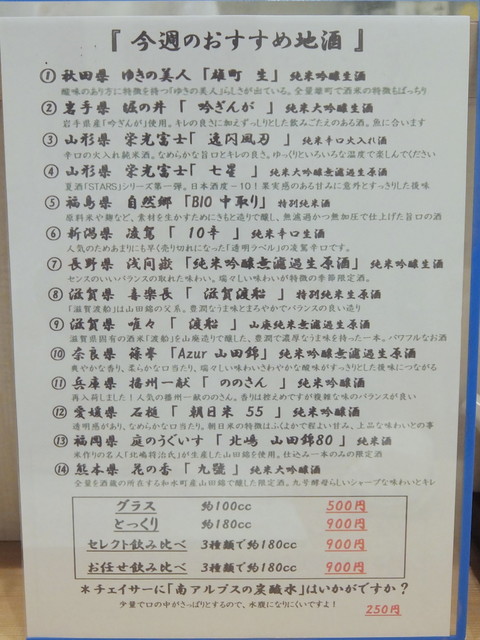 『 今週のおすすめ地酒 』
① 秋田県 ゆきの美人「雄町 生」純米吟醸生酒
酸味のあり方に特徴を待つ「ゆきの美人」らしさが出ている。全量雄町で酒米の特徴もばっちり
② 岩手県 堀の井「 吟ぎんが 」純米大吟醸生酒
岩手県産「吟ぎんが」使用。キレの良さに加えずっしりとした飲みごたえのある酒。魚に合います
③ 山形県 栄光冨士「 逸閃風刃 」純米辛口火入れ酒
辛口の火入れ純米酒。なめらかな旨口とキレの良さ。ゆっくりといろいろな温度で楽しんでください
④ 山形県 栄光冨士「 七星 」純米大吟醸無濾過生原酒
夏酒「STARS」シリーズ第一弾。日本酒度-10！果実感のある甘みに意外とすっきりした後味
⑤ 福島県 自然郷「BIO 中取り」特別純米酒
原料米や麹など、素材を生かすためにきもとと造りで醸し、無濾過かつ無加圧で仕上げた旨口の酒
⑥ 新潟県 凌駕「 10辛 」純米辛口生酒
人気のためあまりにも早く売り切れになった「透明ラベル」の凌駕辛口です。
⑦ 長野県 浅間嶽「純米吟醸無濾過生原酒」純米吟醸生酒
センスのいいバランスの取れた味わい。瑞々しい味わいが特徴の季節限定酒。
⑧ 滋賀県 喜楽長「 滋賀渡船 」特別純米生原酒
「滋賀渡船」は山田錦の父系。豊潤なうま味とまろやかでバランスの良い造り
⑨ 滋賀県 唯々「 渡船 」山廃純米無濾過生原酒
滋賀県固有の酒米「渡船」を山廃造りで醸した、豊潤で濃厚なうま味を待った一本。パワフルなお酒
⑩ 奈良県 篠峯「Azur 山田錦」純米吟醸無濾過生原酒
爽やかな香り、柔らかな口当たり、瑞々しい味わいさわやかな酸味がすっきりとした後味につながる
⑪ 兵庫県 播州一献「 ののさん 」純米吟醸生酒
再入荷しました！人気の播州一献ののさん。香りは控えめですが複雑な味のバランスが良い
⑫ 愛媛県 石鎚「 朝日米 55 」純米大吟醸生酒
透明感があり、なめらかな口当たり。朝日米の特徴はふくよかで程よい甘み、上品な味わいとの事
⑬ 福岡県 庭のうぐいす「北嶋 山田錦80」純米酒
米作りの名人「北嶋将治氏」が生産した山田錦を使用。仕込み一本のみの限定酒
⑭ 熊本県 花の香「 九號 」純米大吟醸酒
全量を酒蔵の所在する和水町産山田錦で醸した限定酒。九号酵母らしいシャープな味わいとキレ
グラス 約100cc 500円
とっくり 約180cc 900円
セレクト飲み比べ 3種類で約180cc 900円
お任せ飲み比べ 3種類で約180cc 900円
＊チェイサーに「南アルプスの炭酸水」はいかがですか？
少量で口の中がさっぱりとするので、水腹になりにくいですよ！ 250円